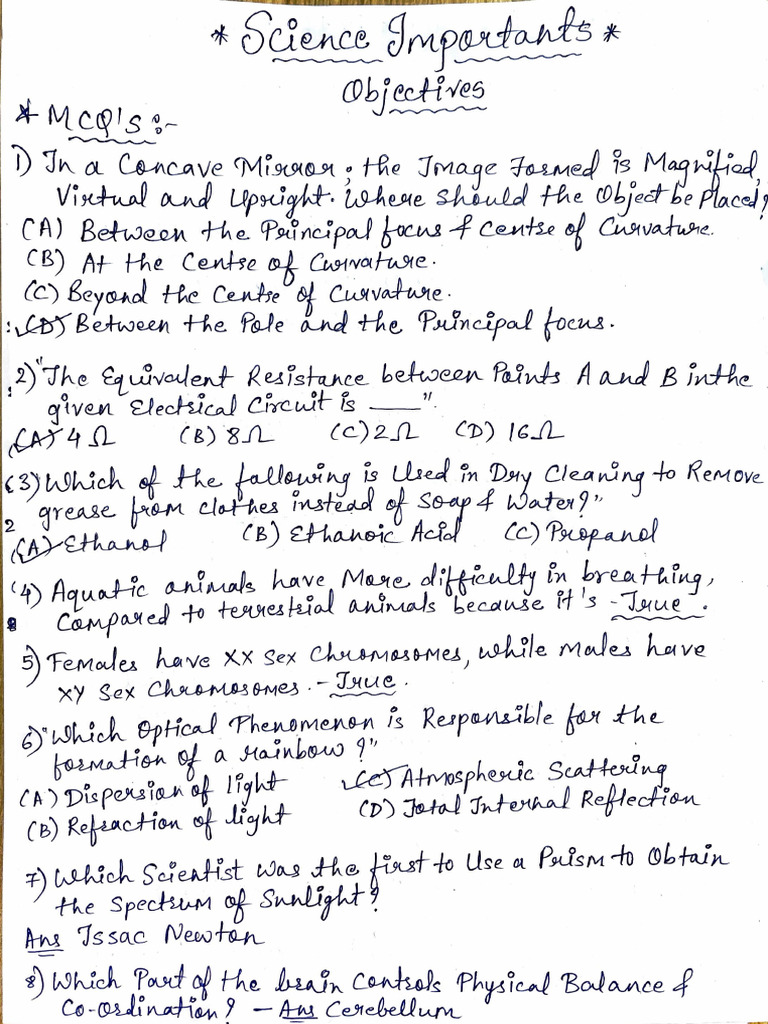 * Science Importants *
Objectives
* MCQ's :-
1) In a Concave Mirror, the Image Formed is Magnified,
Virtual and Upright. Where Should the Object be Placed?
(A) Between the Principal focus & Centre of Curvature.
(B) At the Centre of Curvature.
(C) Beyond the Centre of Curvature.
(D) Between the Pole and the Principal focus.
2) "The Equivalent Resistance between Points A and B in the
given Electrical Circuit is ___".
(A) 4 Ω (B) 8Ω (C) 2Ω (D) 16Ω
(3) Which of the following is Used in Dry Cleaning to Remove
grease from clothes instead of Soap & Water?"
(A) Ethanol (B) Ethanoic Acid (C) Propanol
(4) Aquatic animals have More difficulty in breathing,
Compared to terrestrial animals because it's - True.
5) Females have XX Sex Chromosomes, while Males have
XY Sex Chromosomes. - True.
6) "Which Optical Phenomenon is Responsible for the
formation of a rainbow?"
(A) Dispersion of light (C) Atmospheric Scattering
(B) Refraction of light (D) Total Internal Reflection
7) Which Scientist Was the first to Use a Prism to Obtain
the Spectrum of Sunlight?
Ans Issac Newton
8) Which Part of the brain Controls Physical Balance &
Co-ordination? - Ans Cerebellum